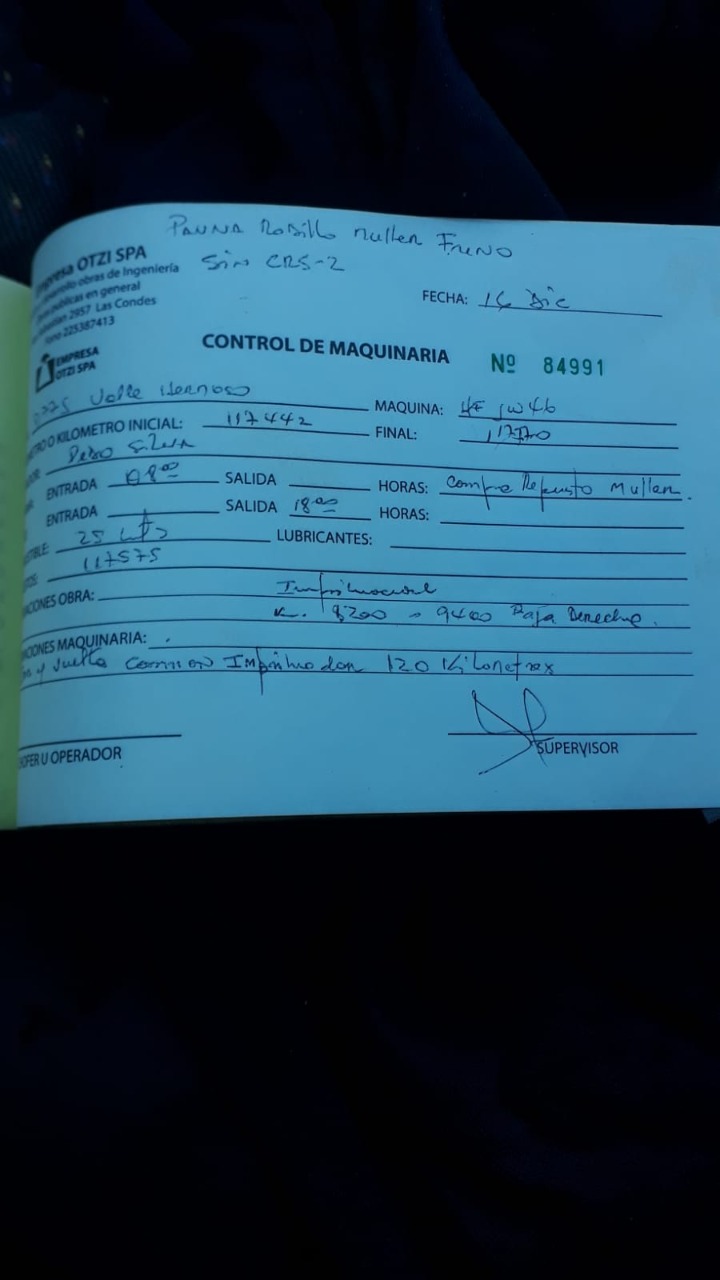 PANNA Rodillo Muller Freno
Sin CRS-2
presa OTZI SPA
arrollo obras de Ingeniería
públicas en general
2957 Las Condes
Fono 225387413
FECHA: 16 Dic
EMPRESA
OTZI SPA
CONTROL DE MAQUINARIA Nº 84991
Valle Hermoso MAQUINA:
METRO O KILOMETRO INICIAL: 117442 FINAL:
Pedro Silva
ENTRADA 08⁰⁰ SALIDA HORAS: Compra Repuesto Muller.
ENTRADA SALIDA 18⁰⁰ HORAS:
TIBLE: 25 Lts LUBRICANTES:
117575
CIONES OBRA: Imprimacion
K. 8200 a 9400 Paja Derecha.
CIONES MAQUINARIA: .
y vuelta Camion Imprimador 120 Kilometros
OFER U OPERADOR
SUPERVISOR